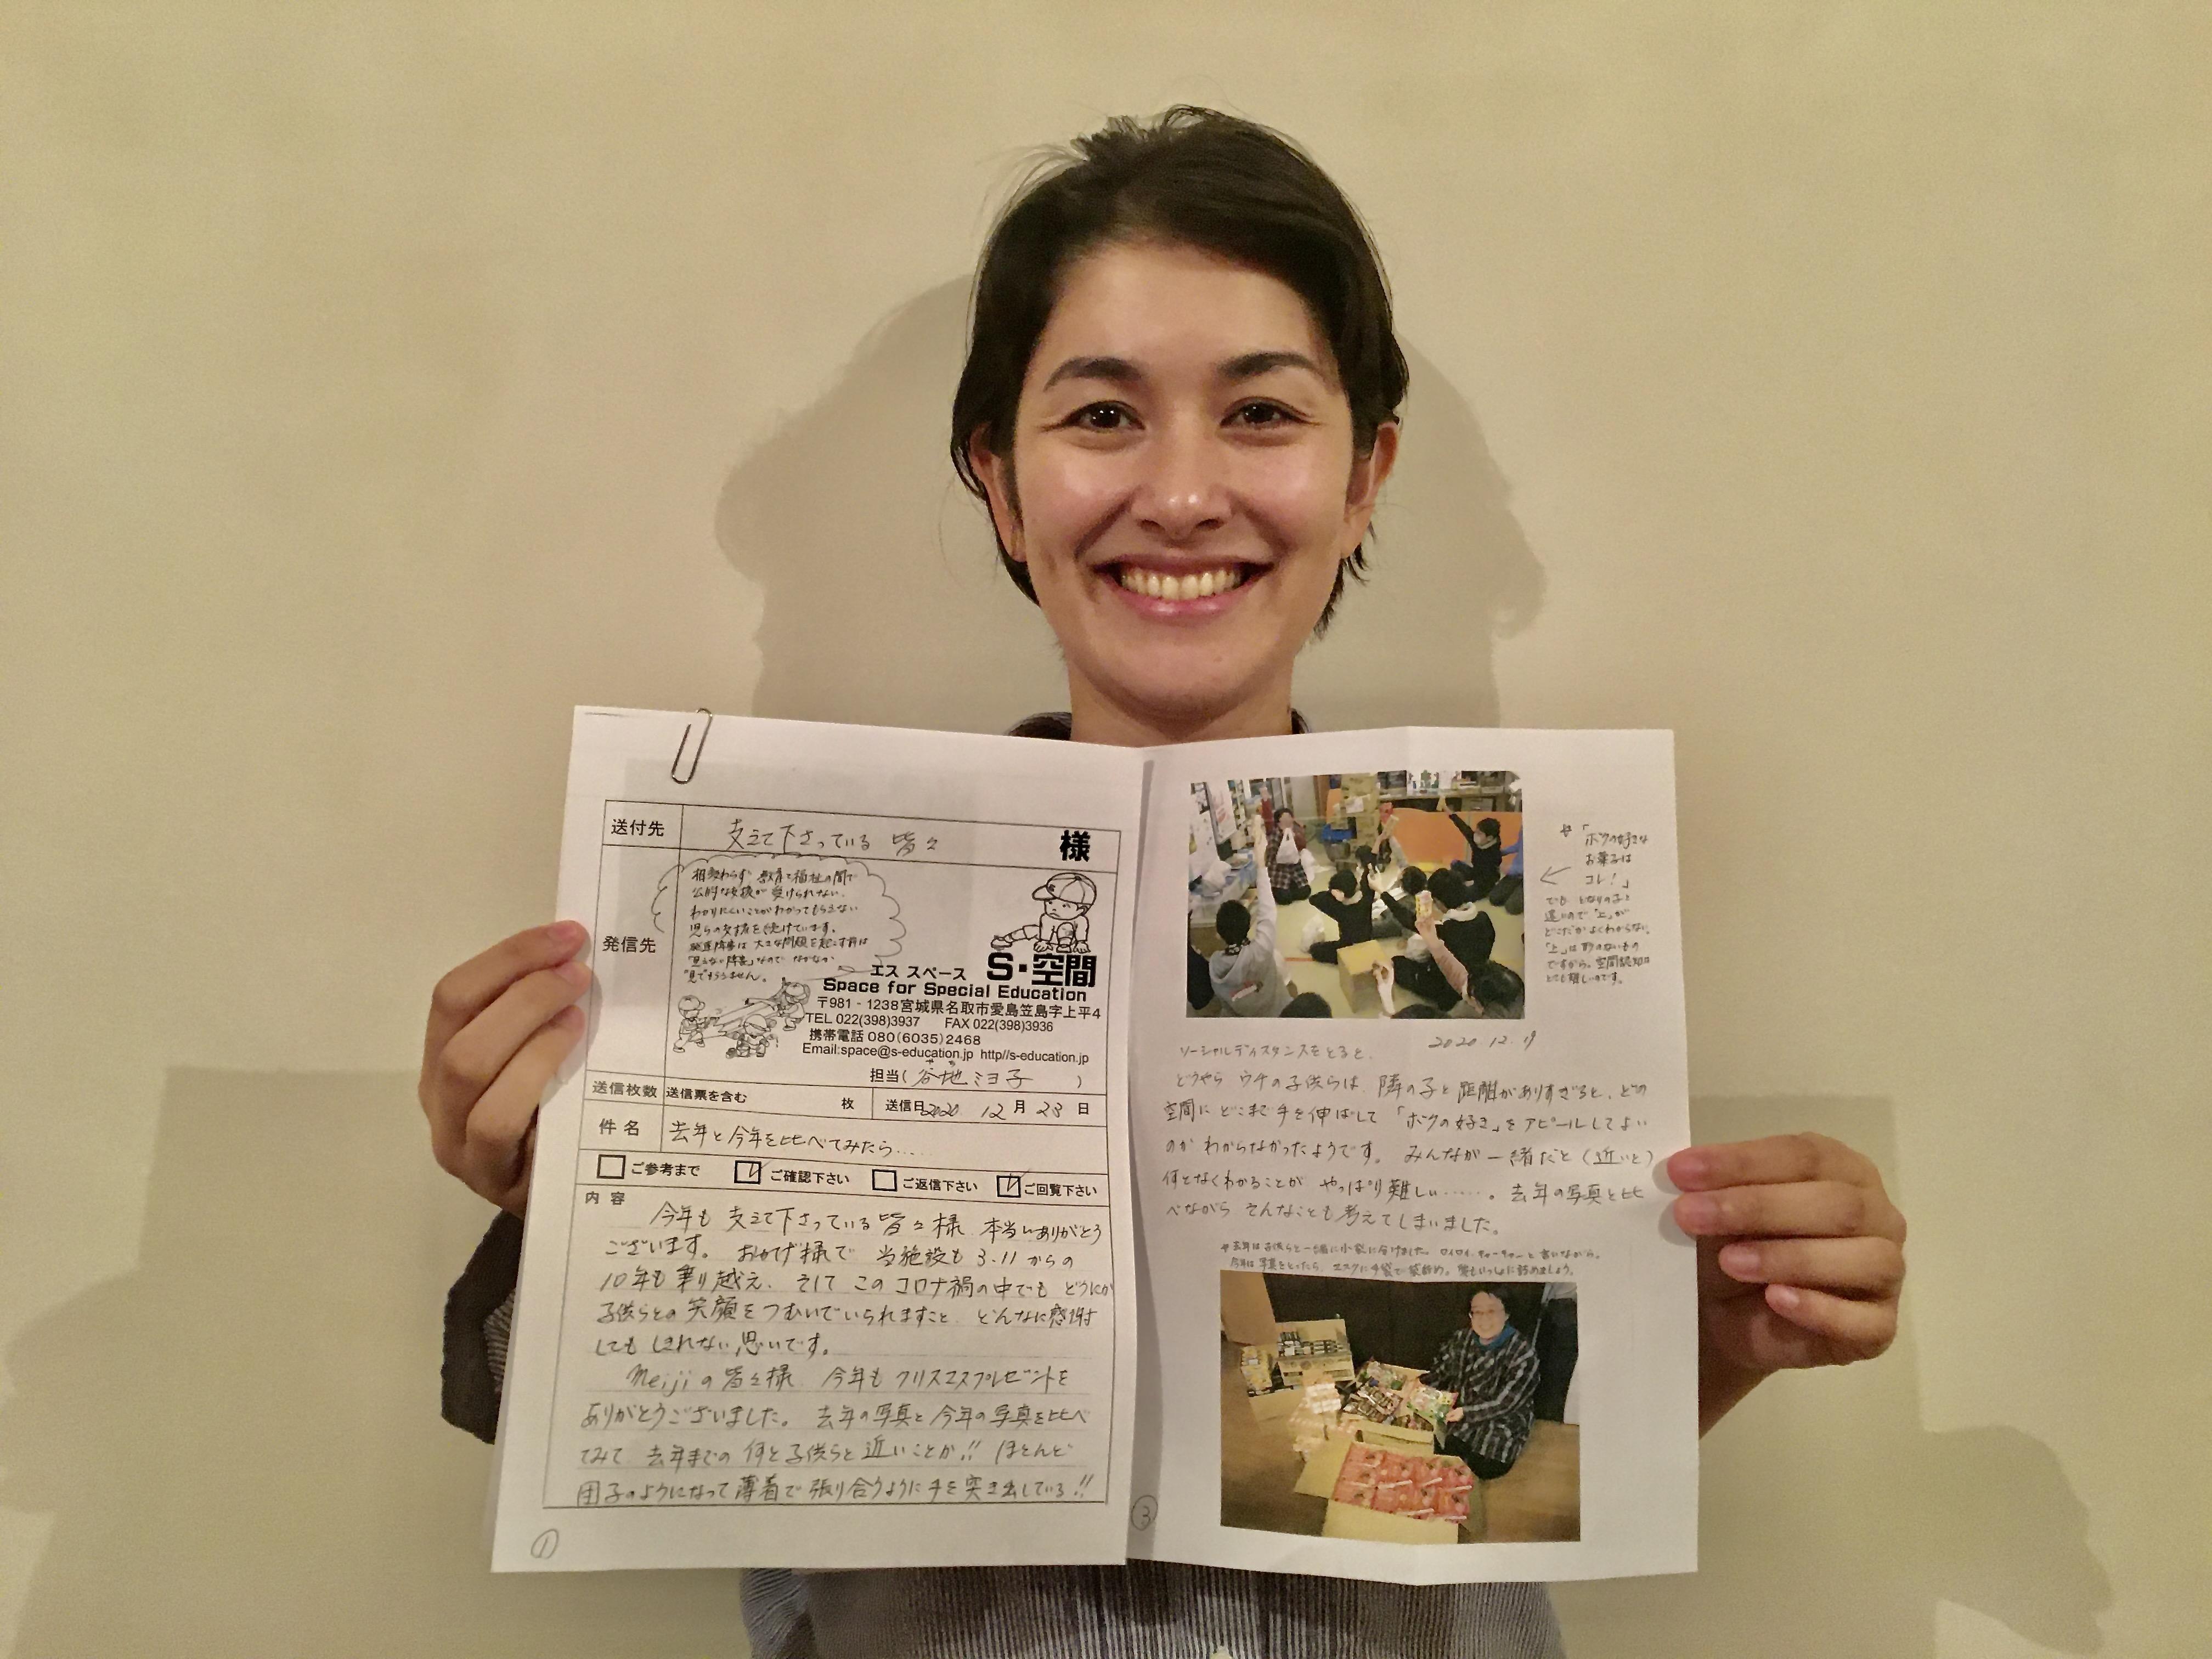 送付先
支えて下さっている 皆々
様
発信先
相変わらず 教育と福祉の間で
公的な支援が 受けられない、
わかりにくいことがわかってもらえない
児らの支援を続けています。
発達障害は 大きな問題を起こす前は
「見えない障害」なので なかなか
エス スペース
S・空間
Space for Special Education
〒981‐1238宮城県名取市愛島笠島字上平4
TEL 022(398)3937 FAX 022(398)3936
携帯電話 080(6035)2468
Email:space@s-education.jp http//s-education.jp
担当(谷地ミヨ子)
送信枚数 送信票を含む 枚 送信日2020 12月 23日
件名 去年と今年を比べてみたら……
ご参考まで ご確認下さい ご返信下さい ご回覧下さい
内容
今年も 支えて下さっている 皆々様 本当にありがとう
ございます。 おかげ様で 当施設も 3.11からの
10年も乗り越え、そして このコロナ禍の中でも どうにか
子供らとの 笑顔をつむいでいられますこと どんなに感謝
しても しきれない 思いです。
Meijiの皆々様 今年も クリスマスプレゼントを
ありがとうございました。 去年の写真と今年の写真を比べ
てみて 去年までの 何と子供らと 近いことか!! ほとんど
団子のようになって薄着で張り合うように手を突き出している!!
①
「ボクの好きな
お菓子は
コレ!」
でも となりの子と
遠いので「上」が
どこだかよくわからない。
「上」は 形のないもの
ですから。空間認知は
とても難しいのです。
2020 12. 19
ソーシャルディスタンスをとると、
どうやら ウチの子供らは、隣の子と距離がありすぎると、どの
空間に どこまで手を伸ばして 「ボクの好き」をアピールしてよい
のか わからなかったようです。 みんなが一緒だと(近いと)
何となくわかることが やっぱり難しい……。去年の写真と比
べながら そんなことも考えてしまいました。
去年は子供らと一緒に小袋に分けました ワイワイ、チャーチャーと言いながら。
③